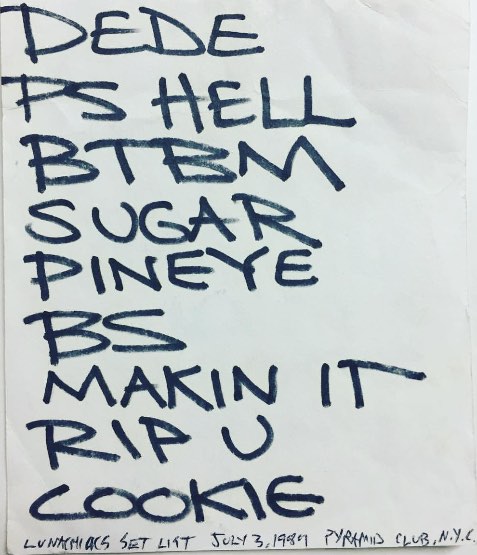 DEDE
PS HELL
BTBM
SUGAR
PINEYE
BS
MAKIN IT
RIP U
COOKIE
LUNACHICKS SET LIST JULY 3, 1989 PYRAMID CLUB, N.Y.C.